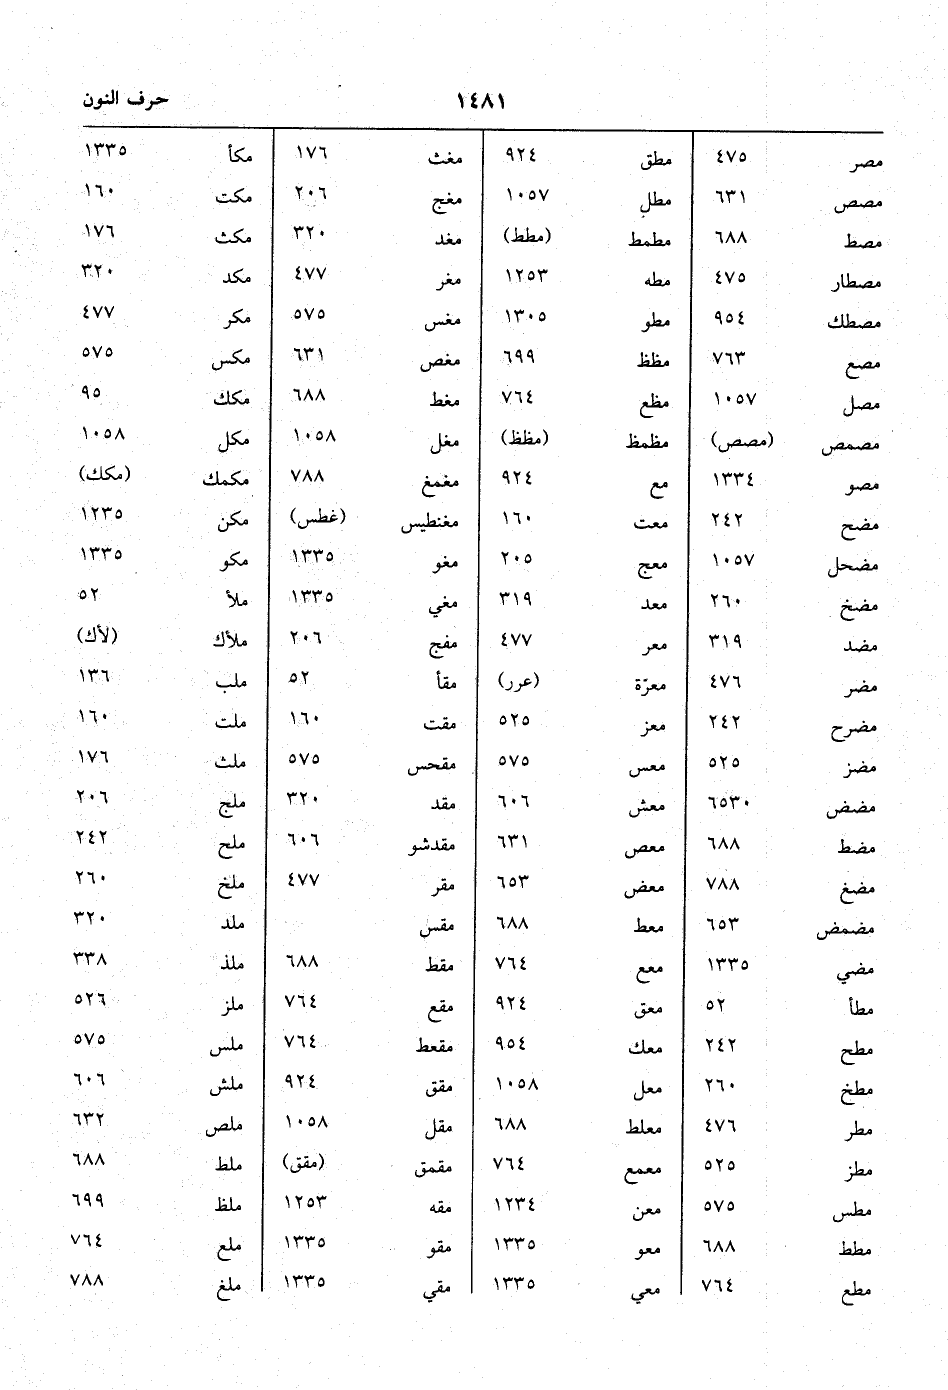 ١٤٨١ حرف النون
مصر ٤٧٥
مصص ٦٣١
مصط ٦٨٨
مصطار ٤٧٥
مصطك ٩٥٤
مصع ٧٦٣
مصل ١٠٥٧
مصمص (مصص)
مصو ١٣٣٤
مضح ٢٤٢
مضحل ١٠٥٧
مضخ ٢٦٠
مضد ٣١٩
مضر ٤٧٦
مضرح ٢٤٢
مضز ٥٢٥
مضض ٦٥٣٠
مضط ٦٨٨
مضغ ٧٨٨
مضمض ٦٥٣
مضي ١٣٣٥
مطأ ٥٢
مطح ٢٤٢
مطخ ٢٦٠
مطر ٤٧٦
مطز ٥٢٥
مطس ٥٧٥
مطط ٦٨٨
مطع ٧٦٤
مطق ٩٢٤
مطل ١٠٥٧
مطمط (مطط)
مطه ١٢٥٣
مطو ١٣٠٥
مظظ ٦٩٩
مظع ٧٦٤
مظمظ (مظظ)
مع ٩٢٤
معت ١٦٠
معج ٢٠٥
معد ٣١٩
معر ٤٧٧
معرّة (عرر)
معز ٥٢٥
معس ٥٧٥
معش ٦٠٦
معص ٦٣١
معض ٦٥٣
معط ٦٨٨
معع ٧٦٤
معق ٩٢٤
معك ٩٥٤
معل ١٠٥٨
معلط ٦٨٨
معمع ٧٦٤
معن ١٢٣٤
معو ١٣٣٥
معي ١٣٣٥
مغث ١٧٦
مغج ٢٠٦
مغد ٣٢٠
مغر ٤٧٧
مغس ٥٧٥
مغص ٦٣١
مغط ٦٨٨
مغل ١٠٥٨
مغمغ ٧٨٨
مغنطيس (غطس)
مغو ١٣٣٥
مغي ١٣٣٥
مفج ٢٠٦
مقأ ٥٢
مقت ١٦٠
مقحس ٥٧٥
مقد ٣٢٠
مقدشو ٦٠٦
مقر ٤٧٧
مقس
مقط ٦٨٨
مقع ٧٦٤
مقعط ٧٦٤
مقق ٩٢٤
مقل ١٠٥٨
مقمق (مقق)
مقه ١٢٥٣
مقو ١٣٣٥
مقي ١٣٣٥
مكأ ١٣٣٥
مكت ١٦٠
مكث ١٧٦
مكد ٣٢٠
مكر ٤٧٧
مكس ٥٧٥
مكك ٩٥
مكل ١٠٥٨
مكمك (مكك)
مكن ١٢٣٥
مكو ١٣٣٥
ملأ ٥٢
ملأك (لأك)
ملب ١٣٦
ملت ١٦٠
ملث ١٧٦
ملج ٢٠٦
ملح ٢٤٢
ملخ ٢٦٠
ملد ٣٢٠
ملذ ٣٣٨
ملز ٥٢٦
ملس ٥٧٥
ملش ٦٠٦
ملص ٦٣٢
ملط ٦٨٨
ملظ ٦٩٩
ملع ٧٦٤
ملغ ٧٨٨